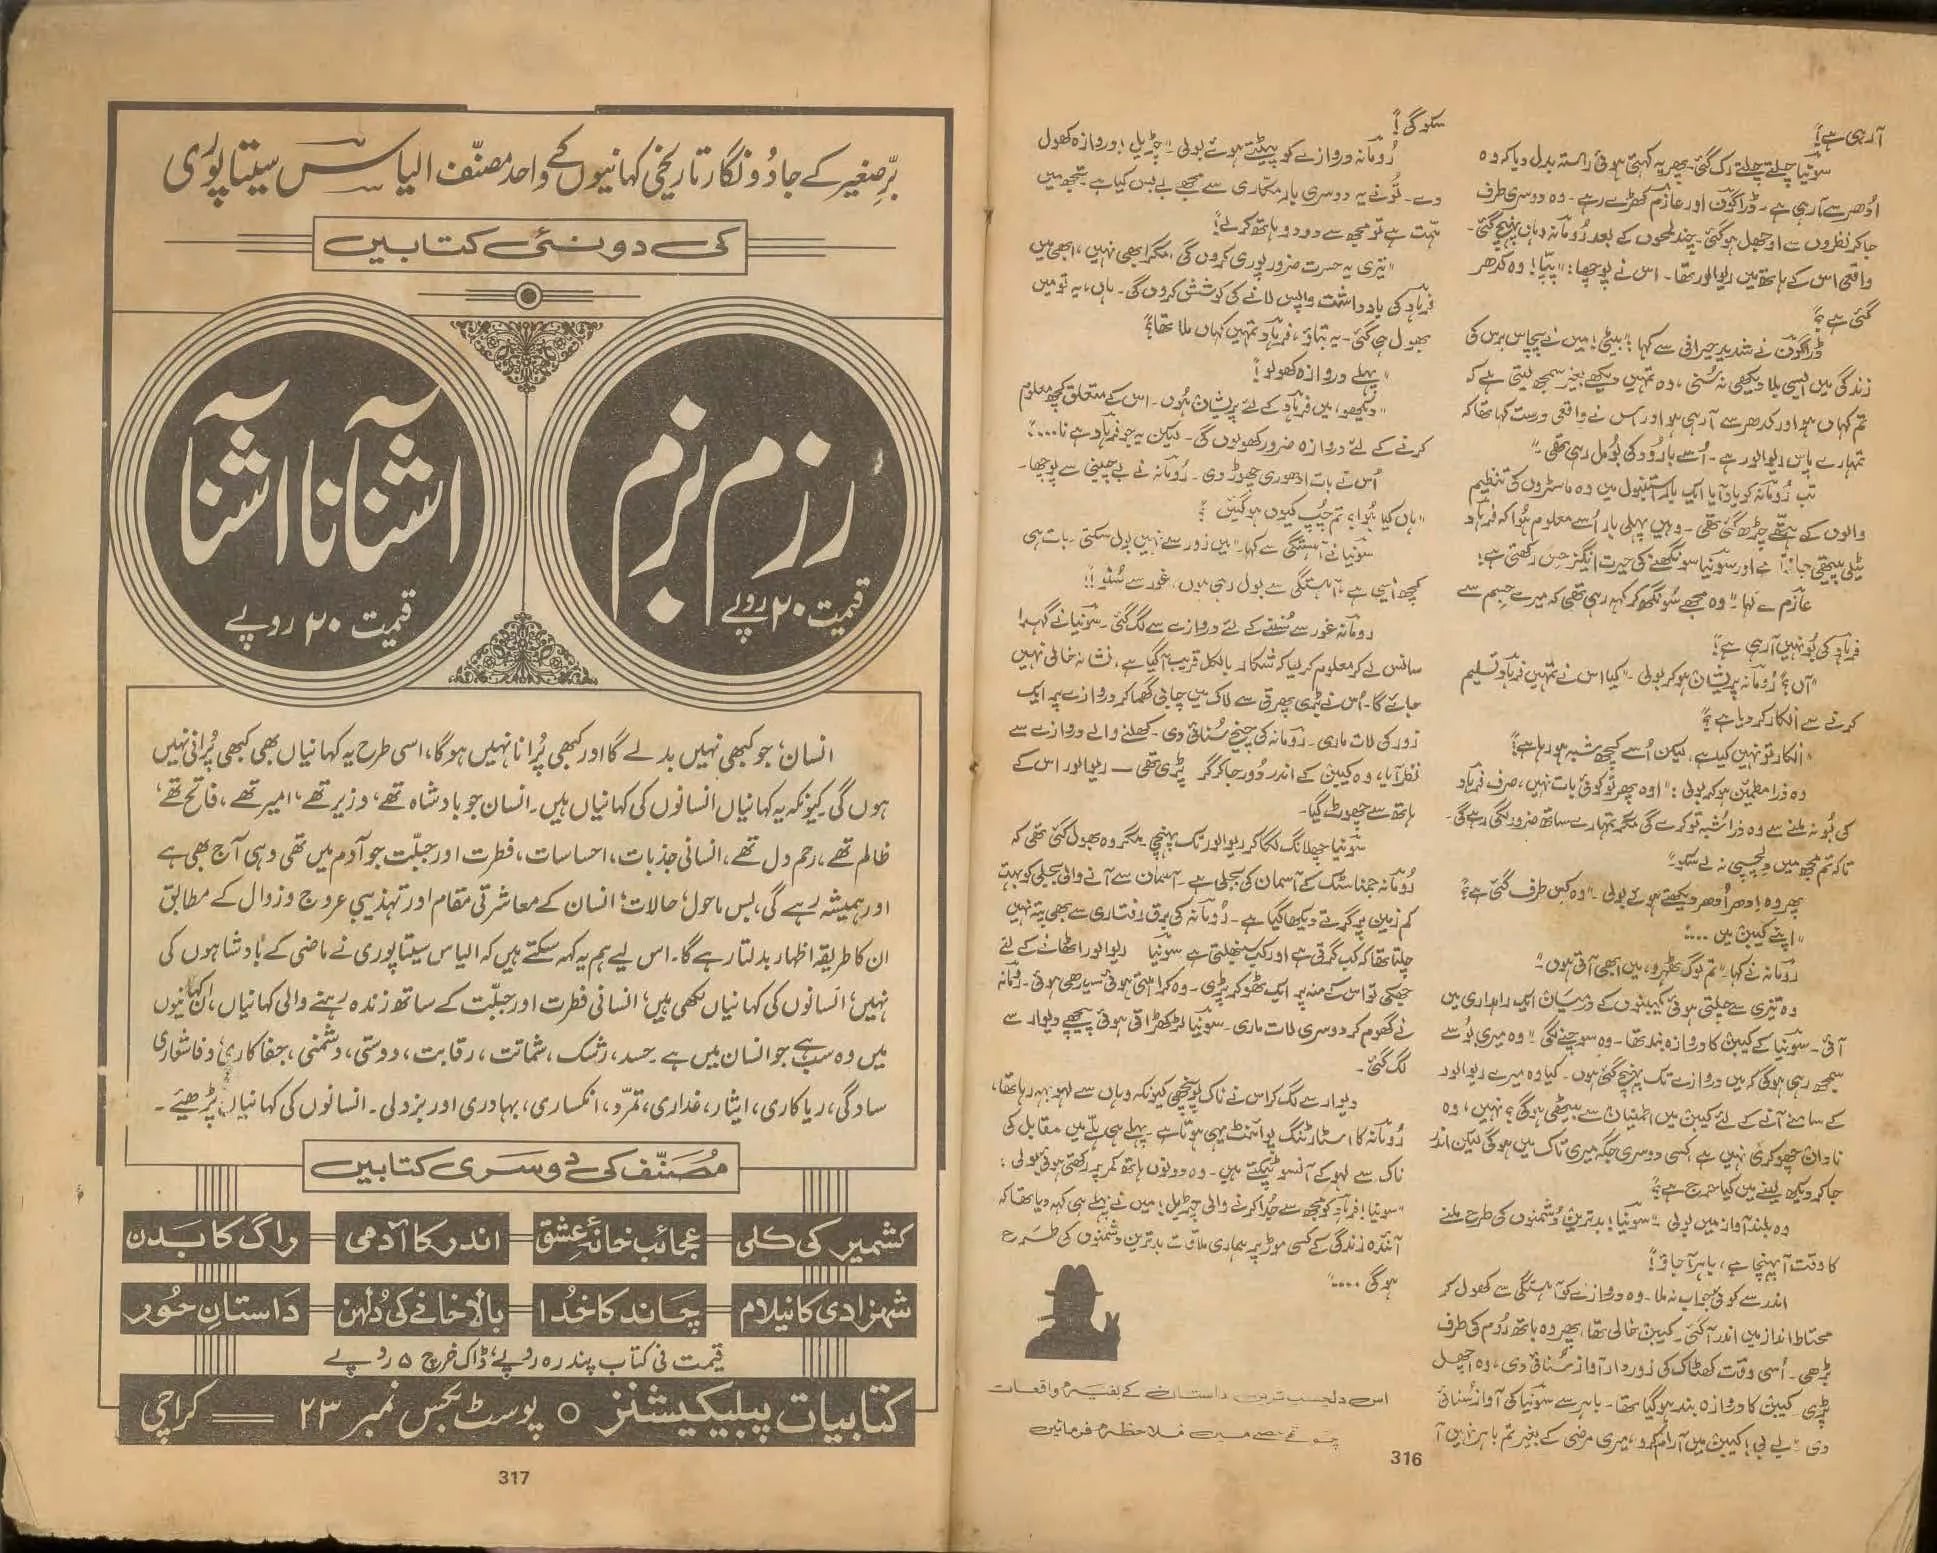 آ رہی ہے!"
سونیا چلتے چلتے رک گئی۔ پھر یہ کہتی ہوئی راستہ بدل دیا کہ وہ
اُدھر سے آ رہی ہے۔ ڈراگون اور عازم کھڑے رہے۔ وہ دوسری طرف
جا کر نظروں سے اوجھل ہو گئی۔ چند لمحوں کے بعد رُومانہ وہاں پہنچ گئی۔
واقعی اس کے ہاتھ میں ریوالور تھا۔ اس نے پوچھا: "پپّا! وہ کدھر
گئی ہے؟"
ڈراگون نے شدید حیرانی سے کہا: "بیٹی! میں نے پچاس برس کی
زندگی میں ایسی بلا دیکھی نہ سُنی، وہ تمہیں دیکھے بغیر سمجھ لیتی ہے کہ
تم کہاں ہو اور کدھر سے آ رہی ہو اور اس نے واقعی درست کہا تھا کہ
تمہارے پاس ریوالور ہے۔ اُسے بارُود کی بُو مل رہی تھی۔"
تب رُومانہ کو یاد آیا ایک بار استنبول میں وہ ماسٹروں کی تنظیم
والوں کے ہتھے چڑھ گئی تھی۔ وہیں پہلی بار اُسے معلوم ہُوا کہ فرہاد
ٹیلی پیتھی جانتا ہے اور سونیا سونگھنے کی حیرت انگیز حِس رکھتی ہے؛
عازم نے کہا: "وہ مجھے سُونگھ کر کہہ رہی تھی کہ میرے جسم سے
فرہاد کی بُو نہیں آ رہی ہے!"
"آں؟" رُومانہ پریشان ہو کر بولی۔ "کیا اس نے تمہیں فرہاد تسلیم
کرنے سے انکار کر دیا ہے؟"
"انکار تو نہیں کیا ہے، لیکن اُسے کچھ شبہ ہو رہا ہے!"
وہ ذرا مطمئن ہو کر بولی: "اوہ پھر تو کوئی بات نہیں، صرف فرہاد
کی بُو نہ ملنے سے وہ ذرا شبہ تو کرے گی مگر تمہارے ساتھ ضرور لگی رہے گی۔
تا کہ تم مجھ میں دلچسپی نہ لے سکو۔"
پھر وہ اِدھر اُدھر دیکھتے ہوئے بولی۔ "وہ کس طرف گئی ہے؟"
"اپنے کیبن میں ....."
رُومانہ نے کہا: "تم لوگ ٹھہرو، میں ابھی آتی ہوں۔"
وہ تیزی سے چلتی ہوئی کیبنوں کے درمیان ایک راہداری میں
آئی۔ سونیا کے کیبن کا دروازہ بند تھا۔ وہ سوچنے لگی "وہ میری بُو سے
سمجھ رہی ہو گی کہ میں دروازے تک پہنچ گئی ہوں۔ کیا وہ میرے ریوالور
کے سامنے آنے کے لئے کیبن میں اطمینان سے بیٹھی ہو گی؟ نہیں، وہ
نادان چھوکری نہیں ہے کسی دوسری جگہ میری تاک میں ہو گی لیکن اندر
جا کر دیکھ لینے میں کیا حرج ہے؟"
وہ بلند آواز میں بولی۔ "سونیا! بدترین دشمنوں کی طرح ملنے
کا وقت آ پہنچا ہے، باہر آ جاؤ!"
اندر سے کوئی جواب نہ ملا۔ وہ دروازے کو آہستگی سے کھول کر
محتاط انداز میں اندر آ گئی۔ کیبن خالی تھا، پھر وہ باتھ رُوم کی طرف
بڑھی۔ اُسی وقت کھٹاک کی زور دار آواز سُنائی دی، وہ اچھل
پڑی کیبن کا دروازہ بند ہو گیا تھا۔ باہر سے سونیا کی آواز سُنائی
دی "بے بی! کیبن میں آرام کرو، میری مرضی کے بغیر تم باہر نہیں آ
سکو گی!"
رُومانہ دروازے کو پیٹتے ہوئے بولی۔ "چڑیل! دروازہ کھول
دے۔ تُو نے یہ دوسری بار مکاری سے مجھے بے بس کیا ہے۔ تجھ میں
ہمت ہے تو مجھ سے دو دو ہاتھ کر لے!"
"تیری یہ حسرت ضرور پوری کروں گی، مگر ابھی نہیں، ابھی میں
فرہاد کی یادداشت واپس لانے کی کوشش کروں گی۔ ہاں، یہ تو میں
بھول ہی گئی۔ یہ بتاؤ، فرہاد تمہیں کہاں ملا تھا؟"
"پہلے دروازہ کھولو!"
"دیکھو، میں فرہاد کے لئے پریشان ہُوں۔ اس کے متعلق کچھ معلوم
کرنے کے لئے دروازہ ضرور کھولوں گی۔ لیکن یہ جو فرہاد ہے نا....."
اُس نے بات ادھوری چھوڑ دی۔ رُومانہ نے بے چینی سے پوچھا۔
"ہاں کیا ہُوا؟ تم چُپ کیوں ہو گئیں؟"
سونیا نے آہستگی سے کہا۔ "میں زور سے نہیں بول سکتی۔ بات ہی
کچھ ایسی ہے، آہستگی سے بول رہی ہوں، غور سے سُنو!!"
رومانہ غور سے سُننے کے لئے دروازے سے لگ گئی۔ سونیا نے گہرا
سانس لے کر معلوم کر لیا کہ شکار بالکل قریب آ گیا ہے، نشانہ خالی نہیں
جائے گا۔ اُس نے بڑی پھرتی سے لاک میں چابی گھما کر دروازے پر ایک
زور کی لات ماری۔ رومانہ کی چیخ سُنائی دی۔ کھلنے والے دروازے سے
نظر آیا، وہ کیبن کے اندر دُور جا کر گر پڑی تھی — ریوالور اس کے
ہاتھ سے چھوٹ گیا۔
سونیا چھلانگ لگا کر ریوالور تک پہنچی۔ مگر وہ بھول گئی تھی کہ
رُومانہ جمناسٹک کے آسمان کی بجلی ہے۔ آسمان سے آنے والی بجلی کو بہت
کم زمین پر گرتے دیکھا گیا ہے۔ رُومانہ کی برق رفتاری سے بھی پتہ نہیں
چلتا تھا کہ کب گرتی ہے اور کب سنبھلتی ہے سونیا ریوالور اٹھانے کے لئے
جھکی تو اس کے منہ پر ایک ٹھوکر پڑی۔ وہ کراہتی ہوئی سیدھی ہوئی۔ رومانہ
نے گھوم کر دوسری لات ماری۔ سونیا لڑکھڑاتی ہوئی پیچھے دیوار سے
لگ گئی۔
دیوار سے لگ کر اس نے ناک پونچھی کیونکہ وہاں سے لہو بہہ رہا تھا،
رُومانہ کا اسٹارٹنگ پوائنٹ یہی ہوتا ہے۔ پہلے ہی ہلّے میں مقابل کی
ناک سے لہو کے آنسو ٹپکتے ہیں۔ وہ دونوں ہاتھ کمر پر رکھتی ہوئی بولی؛
"سونیا! فرہاد کو مجھ سے جُدا کرنے والی چڑیل! میں نے پہلے ہی کہہ دیا تھا کہ
آئندہ زندگی کے کسی موڑ پر ہماری ملاقات بدترین دشمنوں کی طرح
ہو گی ....."
اس دلچسپ ترین داستان کے بقیہ واقعات
چوتھے حصے میں ملاحظہ فرمائیں
316
برِّصغیر کے جادُو نگار تاریخی کہانیوں کے واحد مصنّف الیاس سیتاپوری
کی دو نئی کتابیں
رزم بزم
قیمت ۲۰ روپے
آشنا نا آشنا
قیمت ۲۰ روپے
انسان، جو کبھی نہیں بدلے گا اور کبھی پُرانا نہیں ہوگا، اسی طرح یہ کہانیاں بھی کبھی پُرانی نہیں
ہوں گی۔ کیونکہ یہ کہانیاں انسانوں کی کہانیاں ہیں۔ انسان جو بادشاہ تھے، وزیر تھے، امیر تھے، فاتح تھے،
ظالم تھے، رحم دل تھے، انسانی جذبات، احساسات، فطرت اور جبلّت جو آدم میں تھی وہی آج بھی ہے
اور ہمیشہ رہے گی، بس ماحول، حالات، انسان کے معاشرتی مقام اور تہذیبی عروج و زوال کے مطابق
ان کا طریقہ اظہار بدلتا رہے گا۔ اس لیے ہم یہ کہہ سکتے ہیں کہ الیاس سیتاپوری نے ماضی کے بادشاہوں کی
نہیں، انسانوں کی کہانیاں لکھی ہیں، انسانی فطرت اور جبلّت کے ساتھ زندہ رہنے والی کہانیاں، ان کہانیوں
میں وہ سب ہے جو انسان میں ہے۔ حسد، رشک، شماتت، رقابت، دوستی، دشمنی، جفا کاری، وفا شعاری
سادگی، ریا کاری، ایثار، غداری، تمرّد، انکساری، بہادری اور بزدلی۔ انسانوں کی کہانیاں پڑھیئے۔
مُصنّف کی دوسری کتابیں
کشمیر کی کلی
عجائب خانۂ عشق
اندر کا آدمی
راگ کا بدن
شہزادی کا نیلام
چاند کا خُدا
بالا خانے کی دُلہن
داستانِ حُور
قیمت فی کتاب پندرہ روپے، ڈاک خرچ ۵ روپے
کتابیات پبلیکیشنز ○ پوسٹ بکس نمبر ۲۳ — کراچی
317